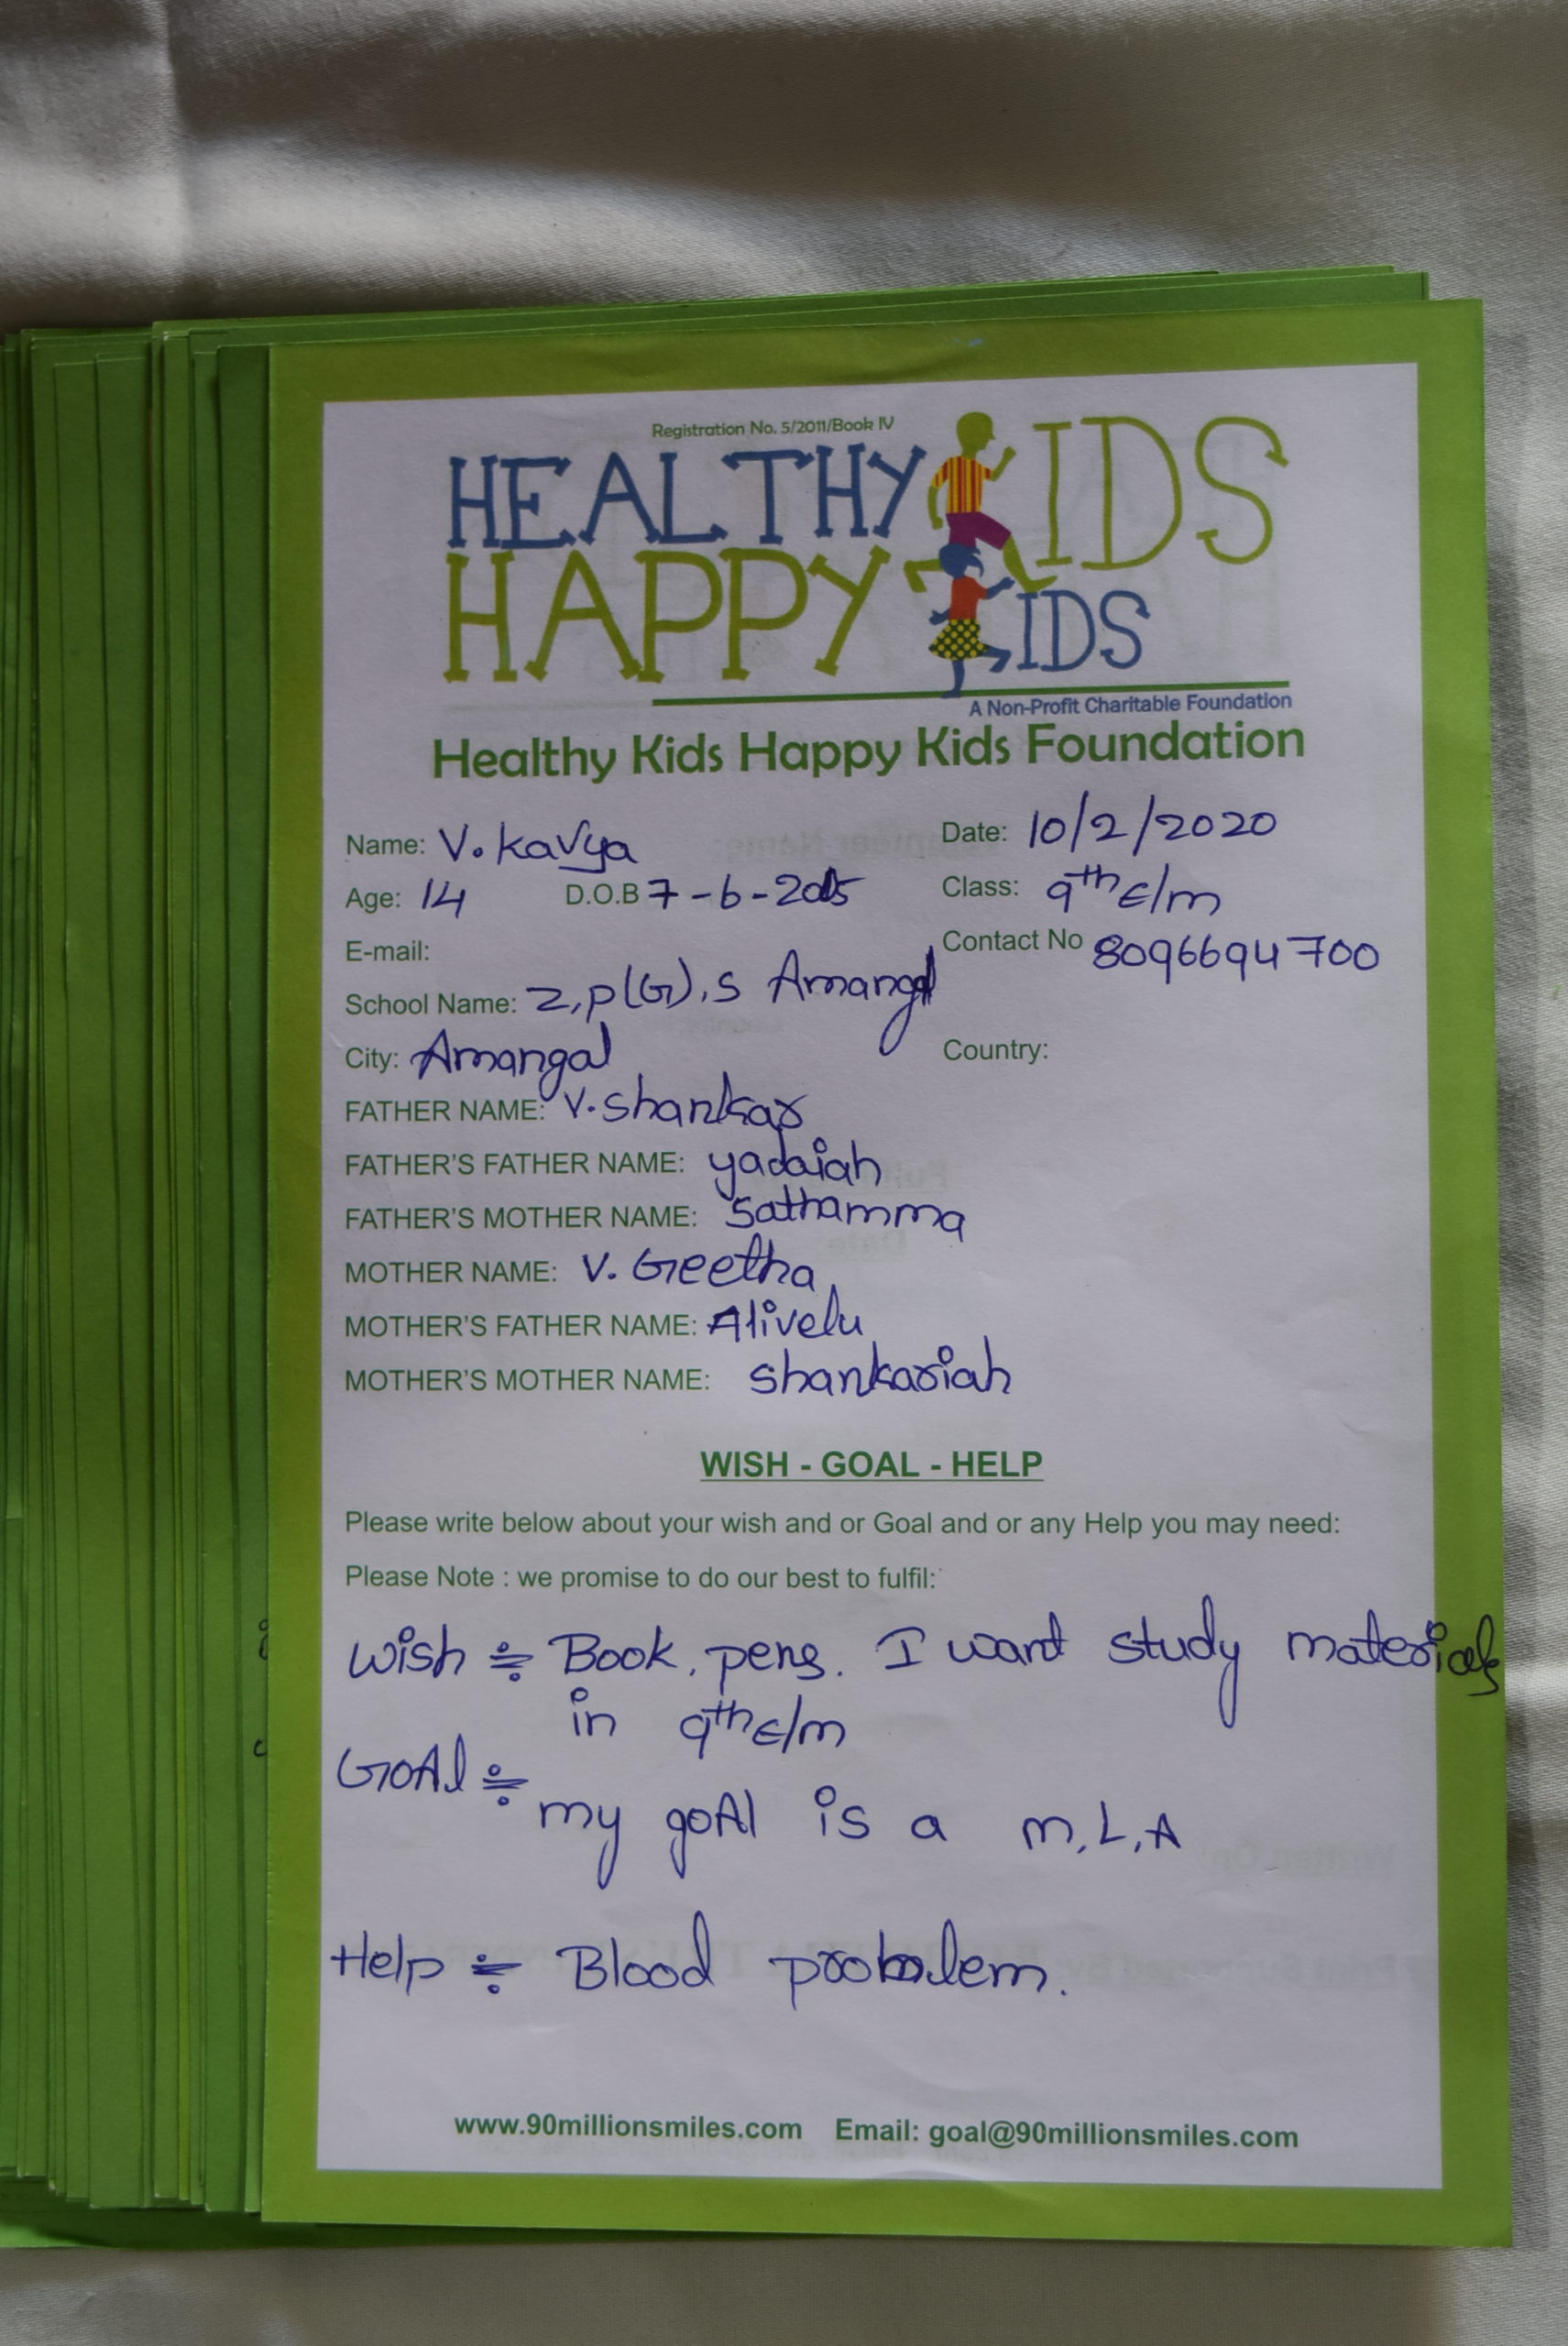 Registration No. 5/2011/Book IV
HEALTHY KIDS
HAPPY KIDS
A Non-Profit Charitable Foundation
Healthy Kids Happy Kids Foundation
Name: V. Kavya Date: 10/2/2020
Age: 14 D.O.B 7-6-2005 Class: 9th E/m
E-mail: Contact No 8096694700
School Name: Z,P(G),S Amangal
City: Amangal Country:
FATHER NAME: V. Shankar
FATHER'S FATHER NAME: yadaiah
FATHER'S MOTHER NAME: Sathamma
MOTHER NAME: V. Geetha
MOTHER'S FATHER NAME: Alivelu
MOTHER'S MOTHER NAME: Shankariah
WISH - GOAL - HELP
Please write below about your wish and or Goal and or any Help you may need:
Please Note : we promise to do our best to fulfil:
Wish ÷ Book, pens. I want study materials
in 9th E/m
GOAl ÷
my goAl is a M,L,A
Help ÷ Blood probalem.
www.90millionsmiles.com Email: goal@90millionsmiles.com